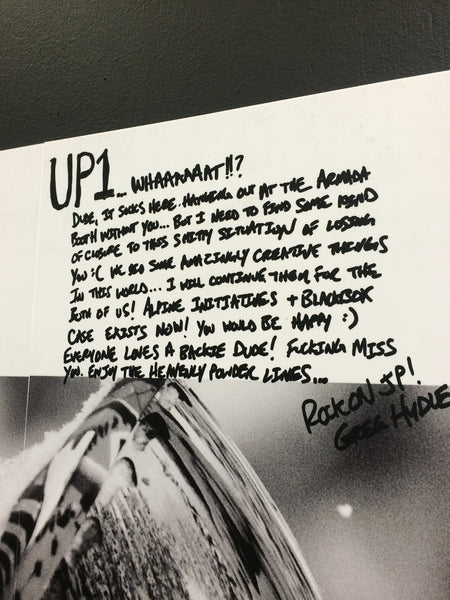 UP1... WHAAAAAAT!!?
DUDE, IT SUCKS HERE. HANGING OUT AT THE ARMADA
BOOTH WITHOUT YOU... BUT I NEED TO FIND SOME KIND
OF CLOSURE TO THIS SHITTY SITUATION OF LOSING
YOU :( WE DID SOME AMAZINGLY CREATIVE THINGS
IN THIS WORLD... I WILL CONTINUE THEM FOR THE
BOTH OF US! ALPINE INITIATIVES + BLACKBOX
CASE EXISTS NOW! YOU WOULD BE HAPPY :)
EVERYONE LOVES A BACKIE DUDE! FUCKING MISS
YOU. ENJOY THE HEAVENLY POWDER LINES...
ROCK ON JP!
GREG